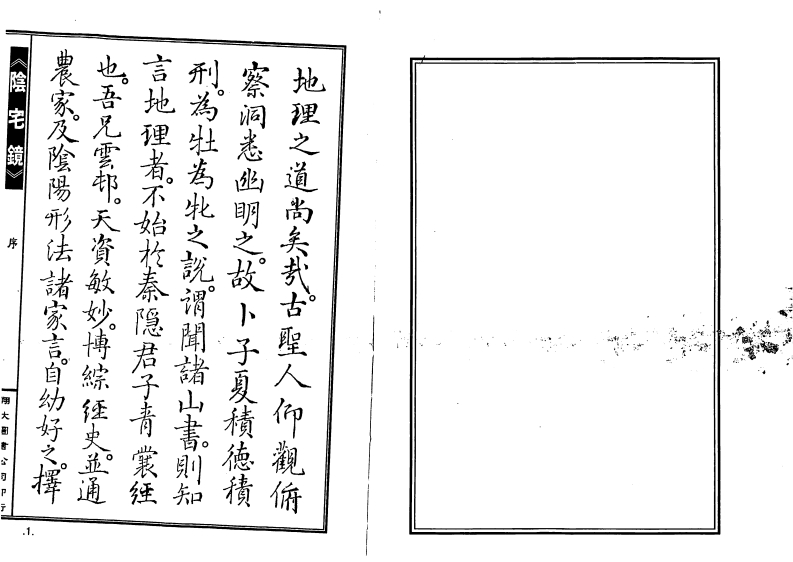 地理之道尚矣哉。古聖人仰觀俯
察洞悉幽明之。故卜子夏積德積
刑。為牡為牝之說。謂聞諸山書。則知
言地理者。不始於秦隐君子青囊經
也。吾兄雲邨。天資敏妙。博綜經史。並通
農家。及陰陽形法諸家言。自幼好之。擇
《陰宅鏡》
序
翔大圖書公司印行
.1.